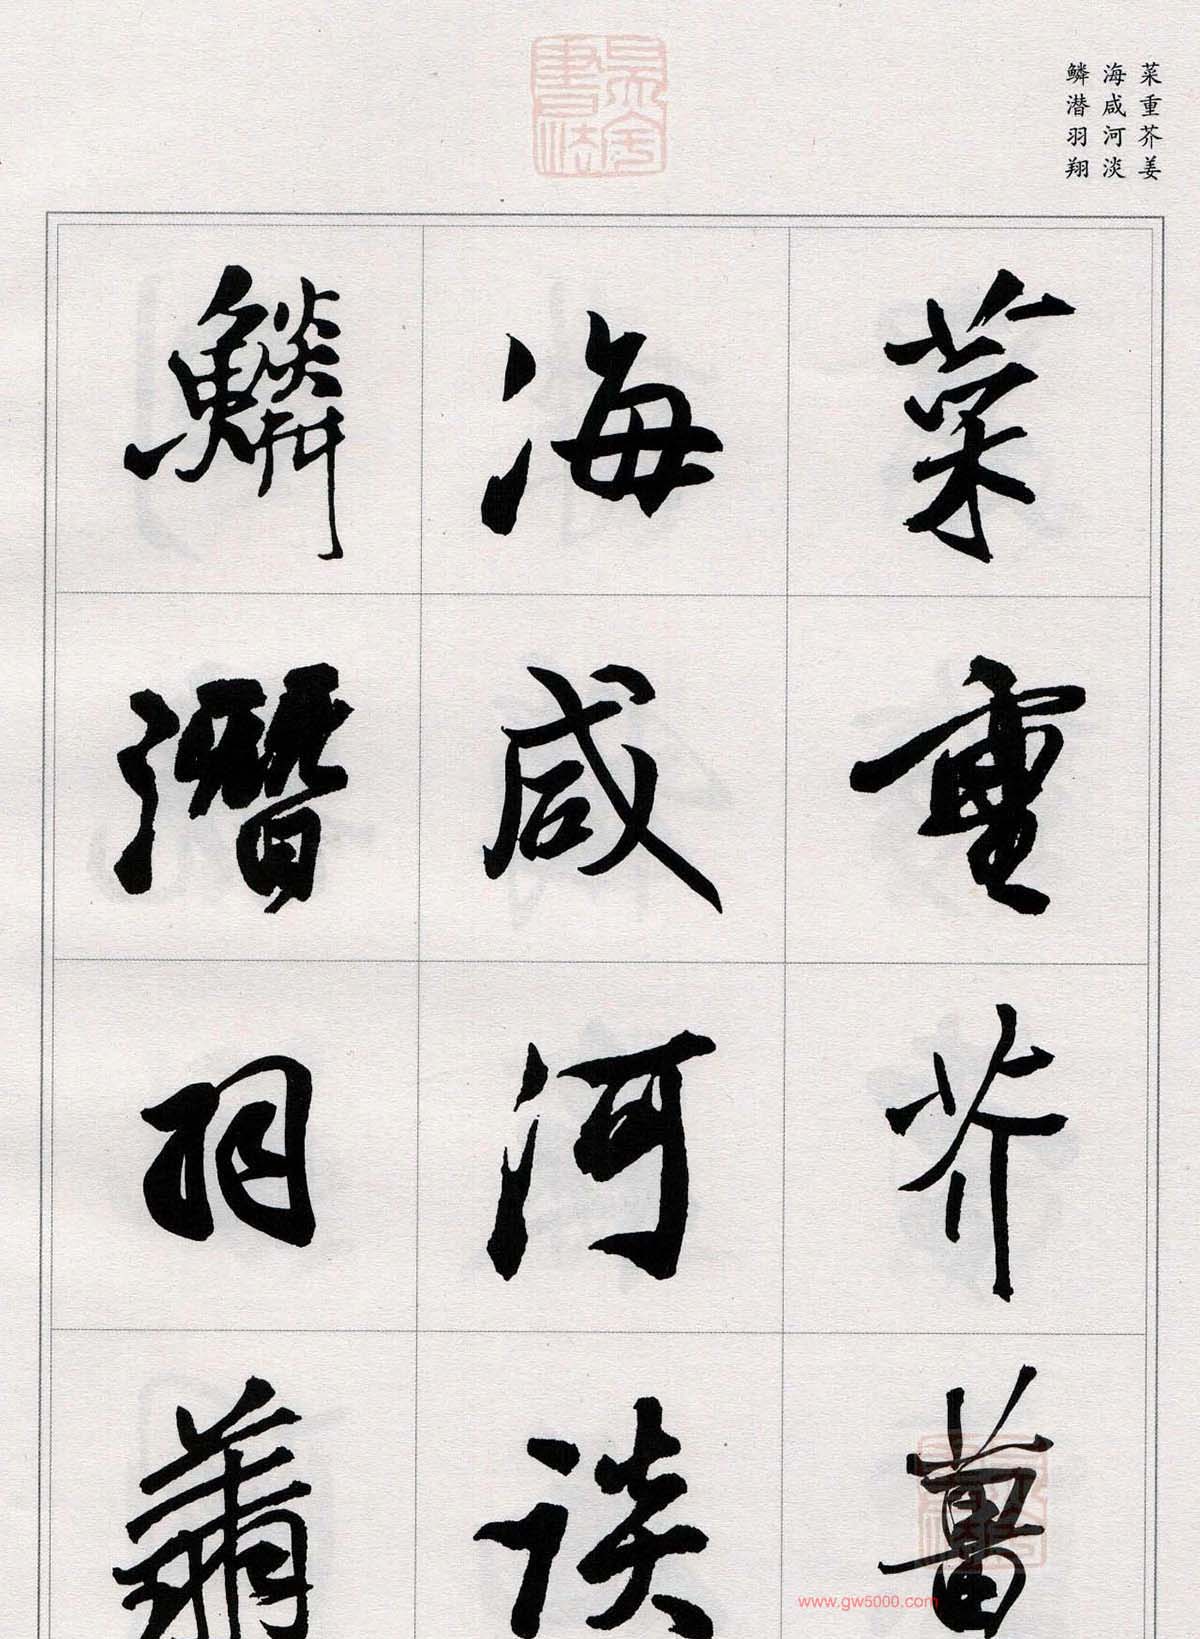 菜重芥姜
海咸河淡
鳞潜羽翔
菜重芥薑
海咸河淡
鱗潛羽翔
www.gw5000.com